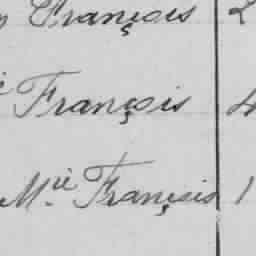 François 2
François 4
Mie François 1